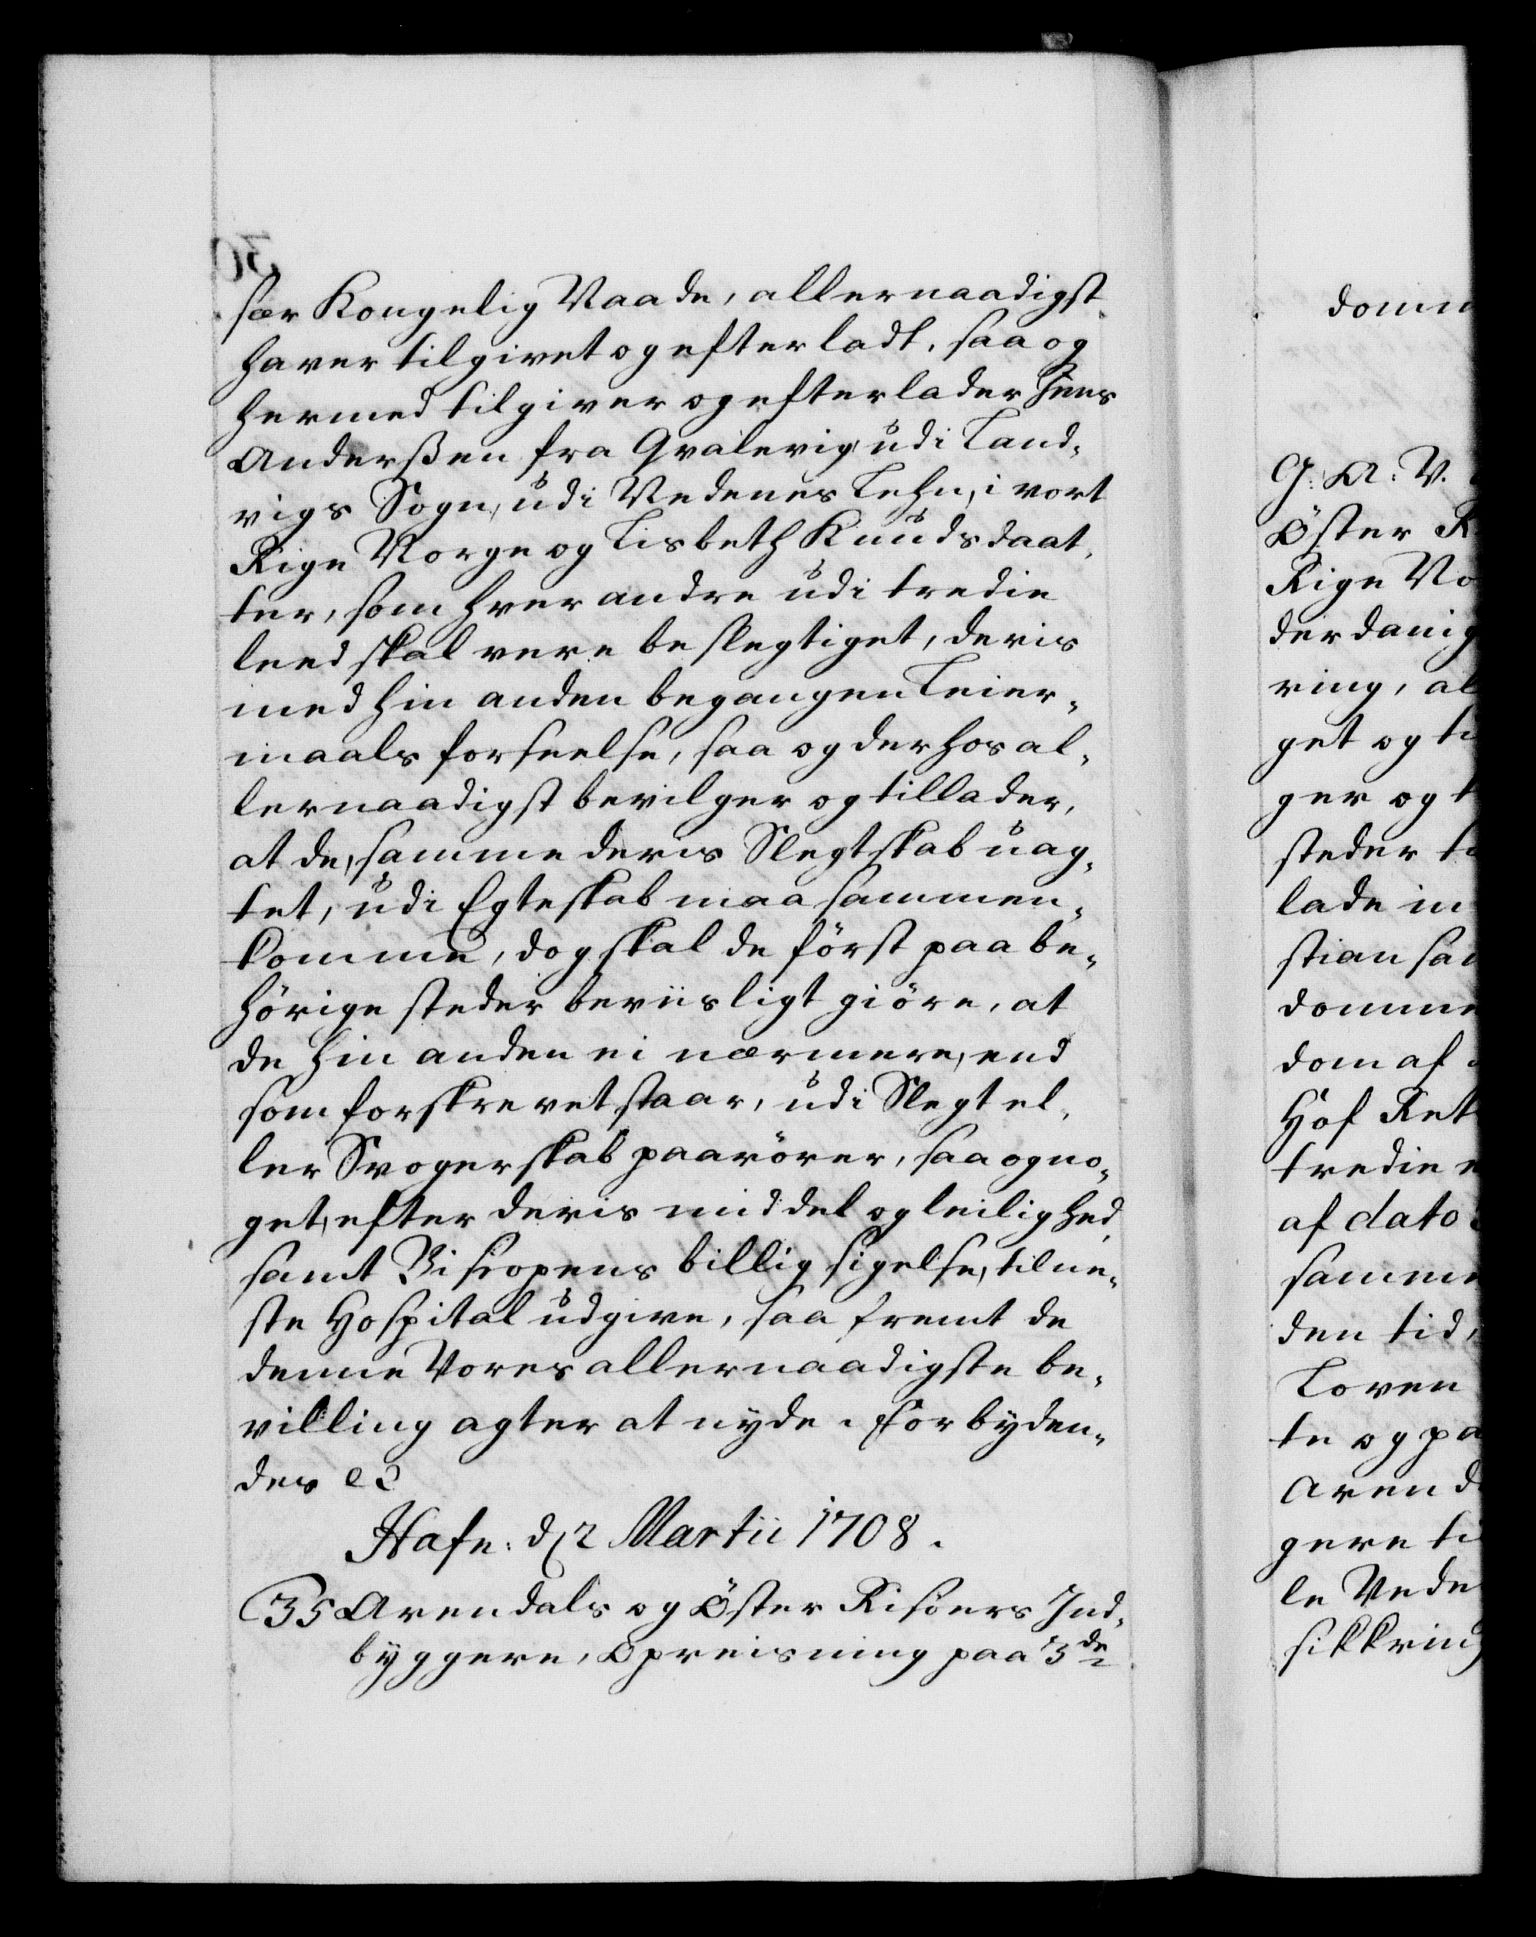 sær Kongelig Naade, allernaadigst
haver tilgivet og efterladt, saa og
hermed tilgiver og efterlader Jens
Anderßen fra Qvalevig udi Land-
vigs Sogn, udi Nedenes Lehn, i vort
Rige Norge og Lisbeth Knudsdaat-
ter, som hver andre udi tredie
leed skal vere beslegtiget, deris
med hin anden begangen Leier-
maals forseelse, saa og derhos al-
lernaadigst bevilger og tillader,
at de, samme deris Slegtskab uag-
tet, udi Egteskab maa sammen-
komme, dog skal de först paa be-
hörige steder beviisligt giöre, at
de hin anden ei nærmere, end
som forskrevet staar, udi Slegt el-
ler Svogerskab paarörer, saa og no-
get, efter deris middel og leilighed
samt Biscopens billig sigelse, til ne-
ste Hospital udgive, saa fremt de
denne Vores allernaadigste be-
villing agter at nyde. Forbyden-
des etc
Hafn: d 2 Martii 1708.
35 Arendals og Öster Risöers Ind-
byggere, Opreisning paa 3de
domm
G: A: V.
Öster R
Rige No
derdanig
ring, al
get og ti
ger og t
steder ti
lade in
stian san
domme
dom af
Hof Ret
tredie
af dato
samme
den tid,
Loven
te og pa
Arend
gere ti
le Vede
sikkring